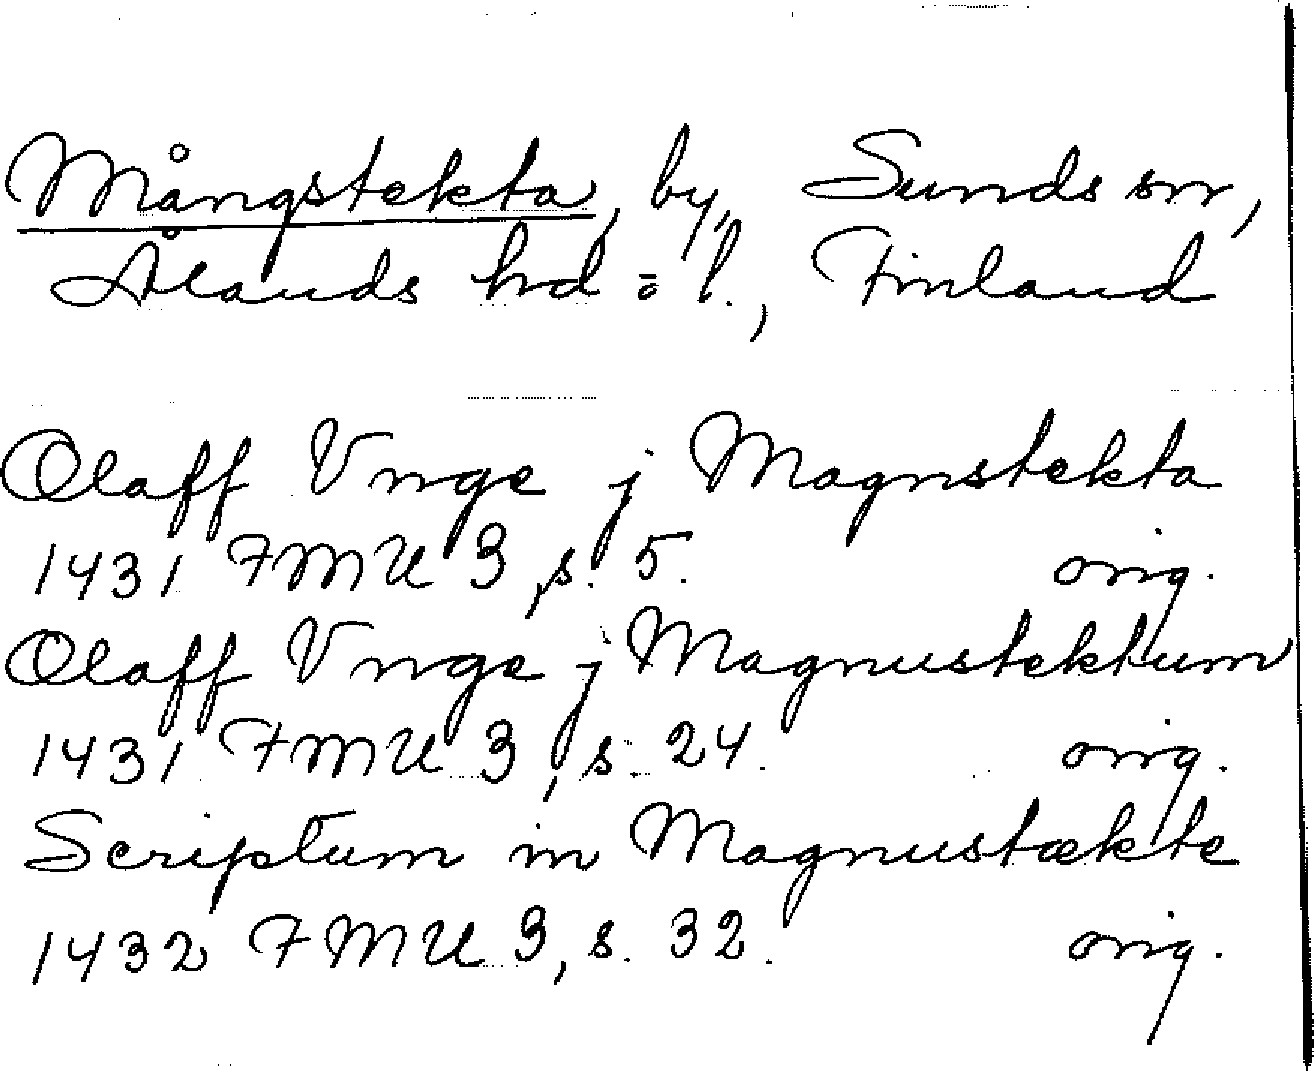 Mångstekta, by, Sunds sn,
Ålands hd o. l., Finland
Olaff Vnge j Magnstekta
1431 FMU 3, s. 5. orig.
Olaff Vnge j Magnustektum
1431 FMU 3, s. 24. orig.
Scriptum in Magnustækte
1432 FMU 3, s. 32. orig.